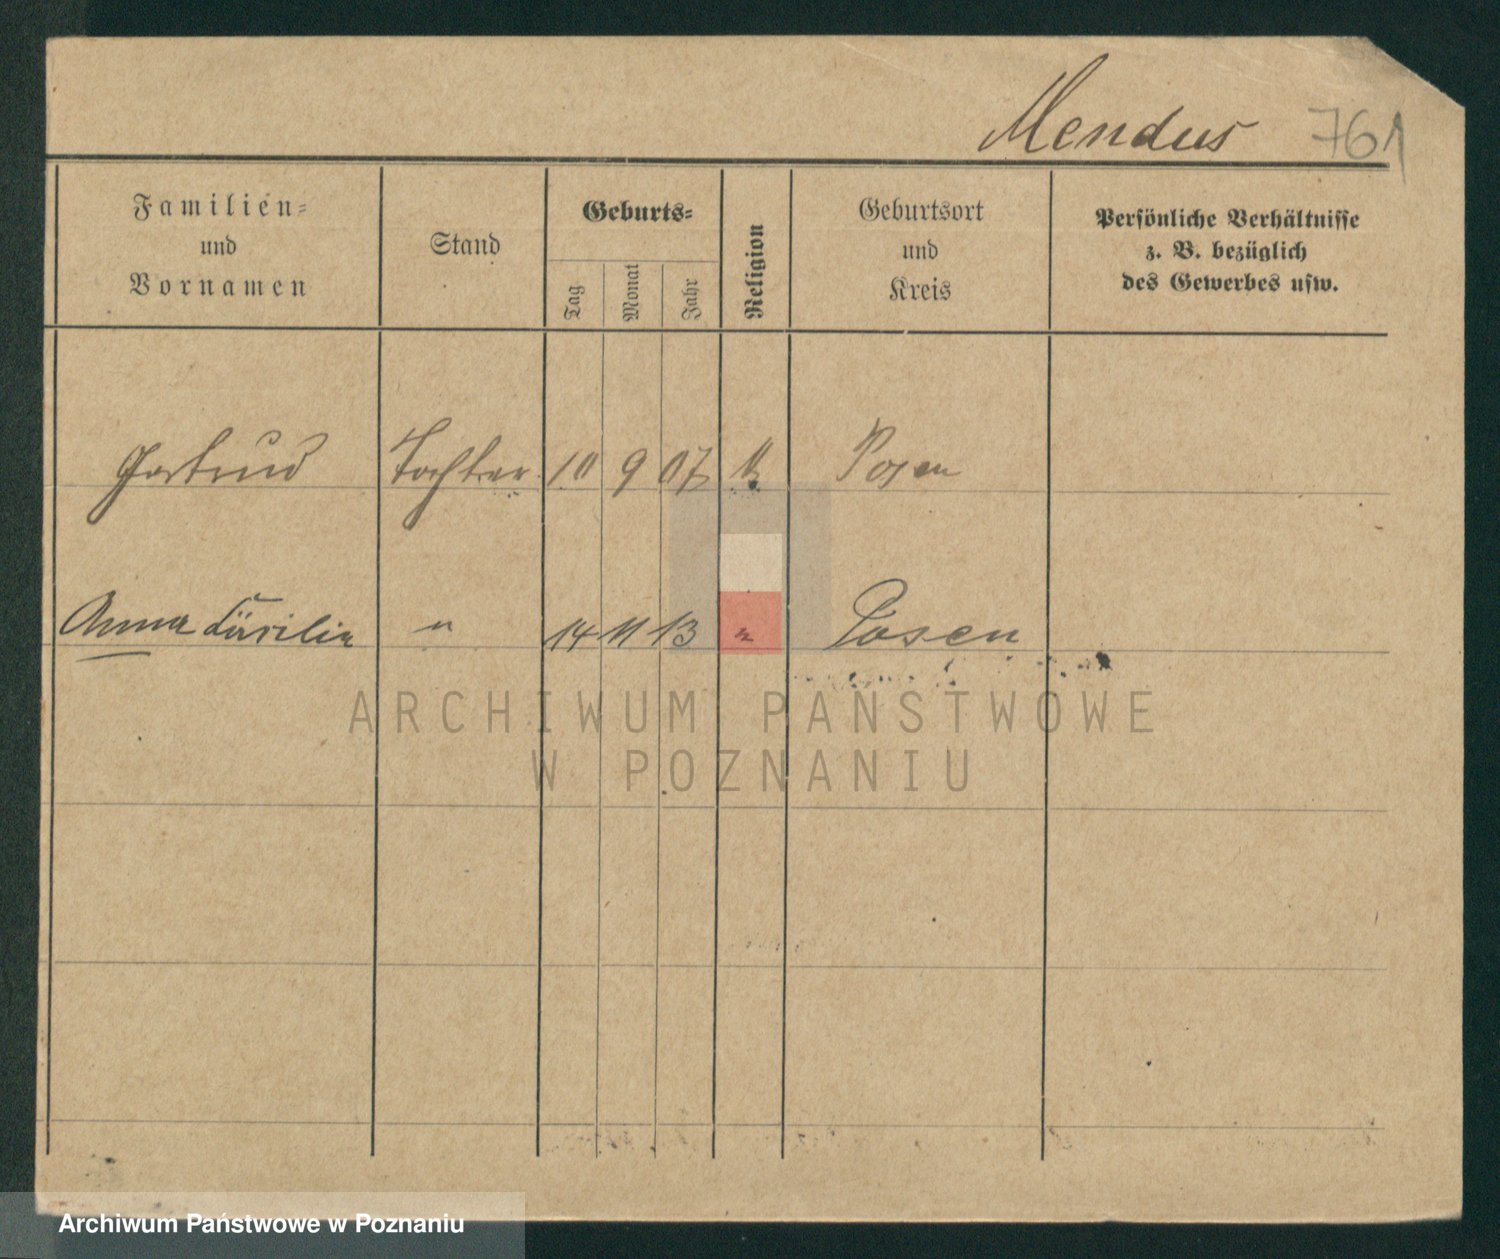 Mendus 761
Familien-
und
Vornamen
Stand
Geburts-
Tag
Monat
Jahr
Religion
Geburtsort
und
Kreis
Persönliche Verhältnisse
z. B. bezüglich
des Gewerbes usw.
Gertrud Tochter 10 9 07 k Posen
Anna Cäcilia " 14 11 13 " Posen
ARCHIWUM PAŃSTWOWE
W POZNANIU
Archiwum Państwowe w Poznaniu